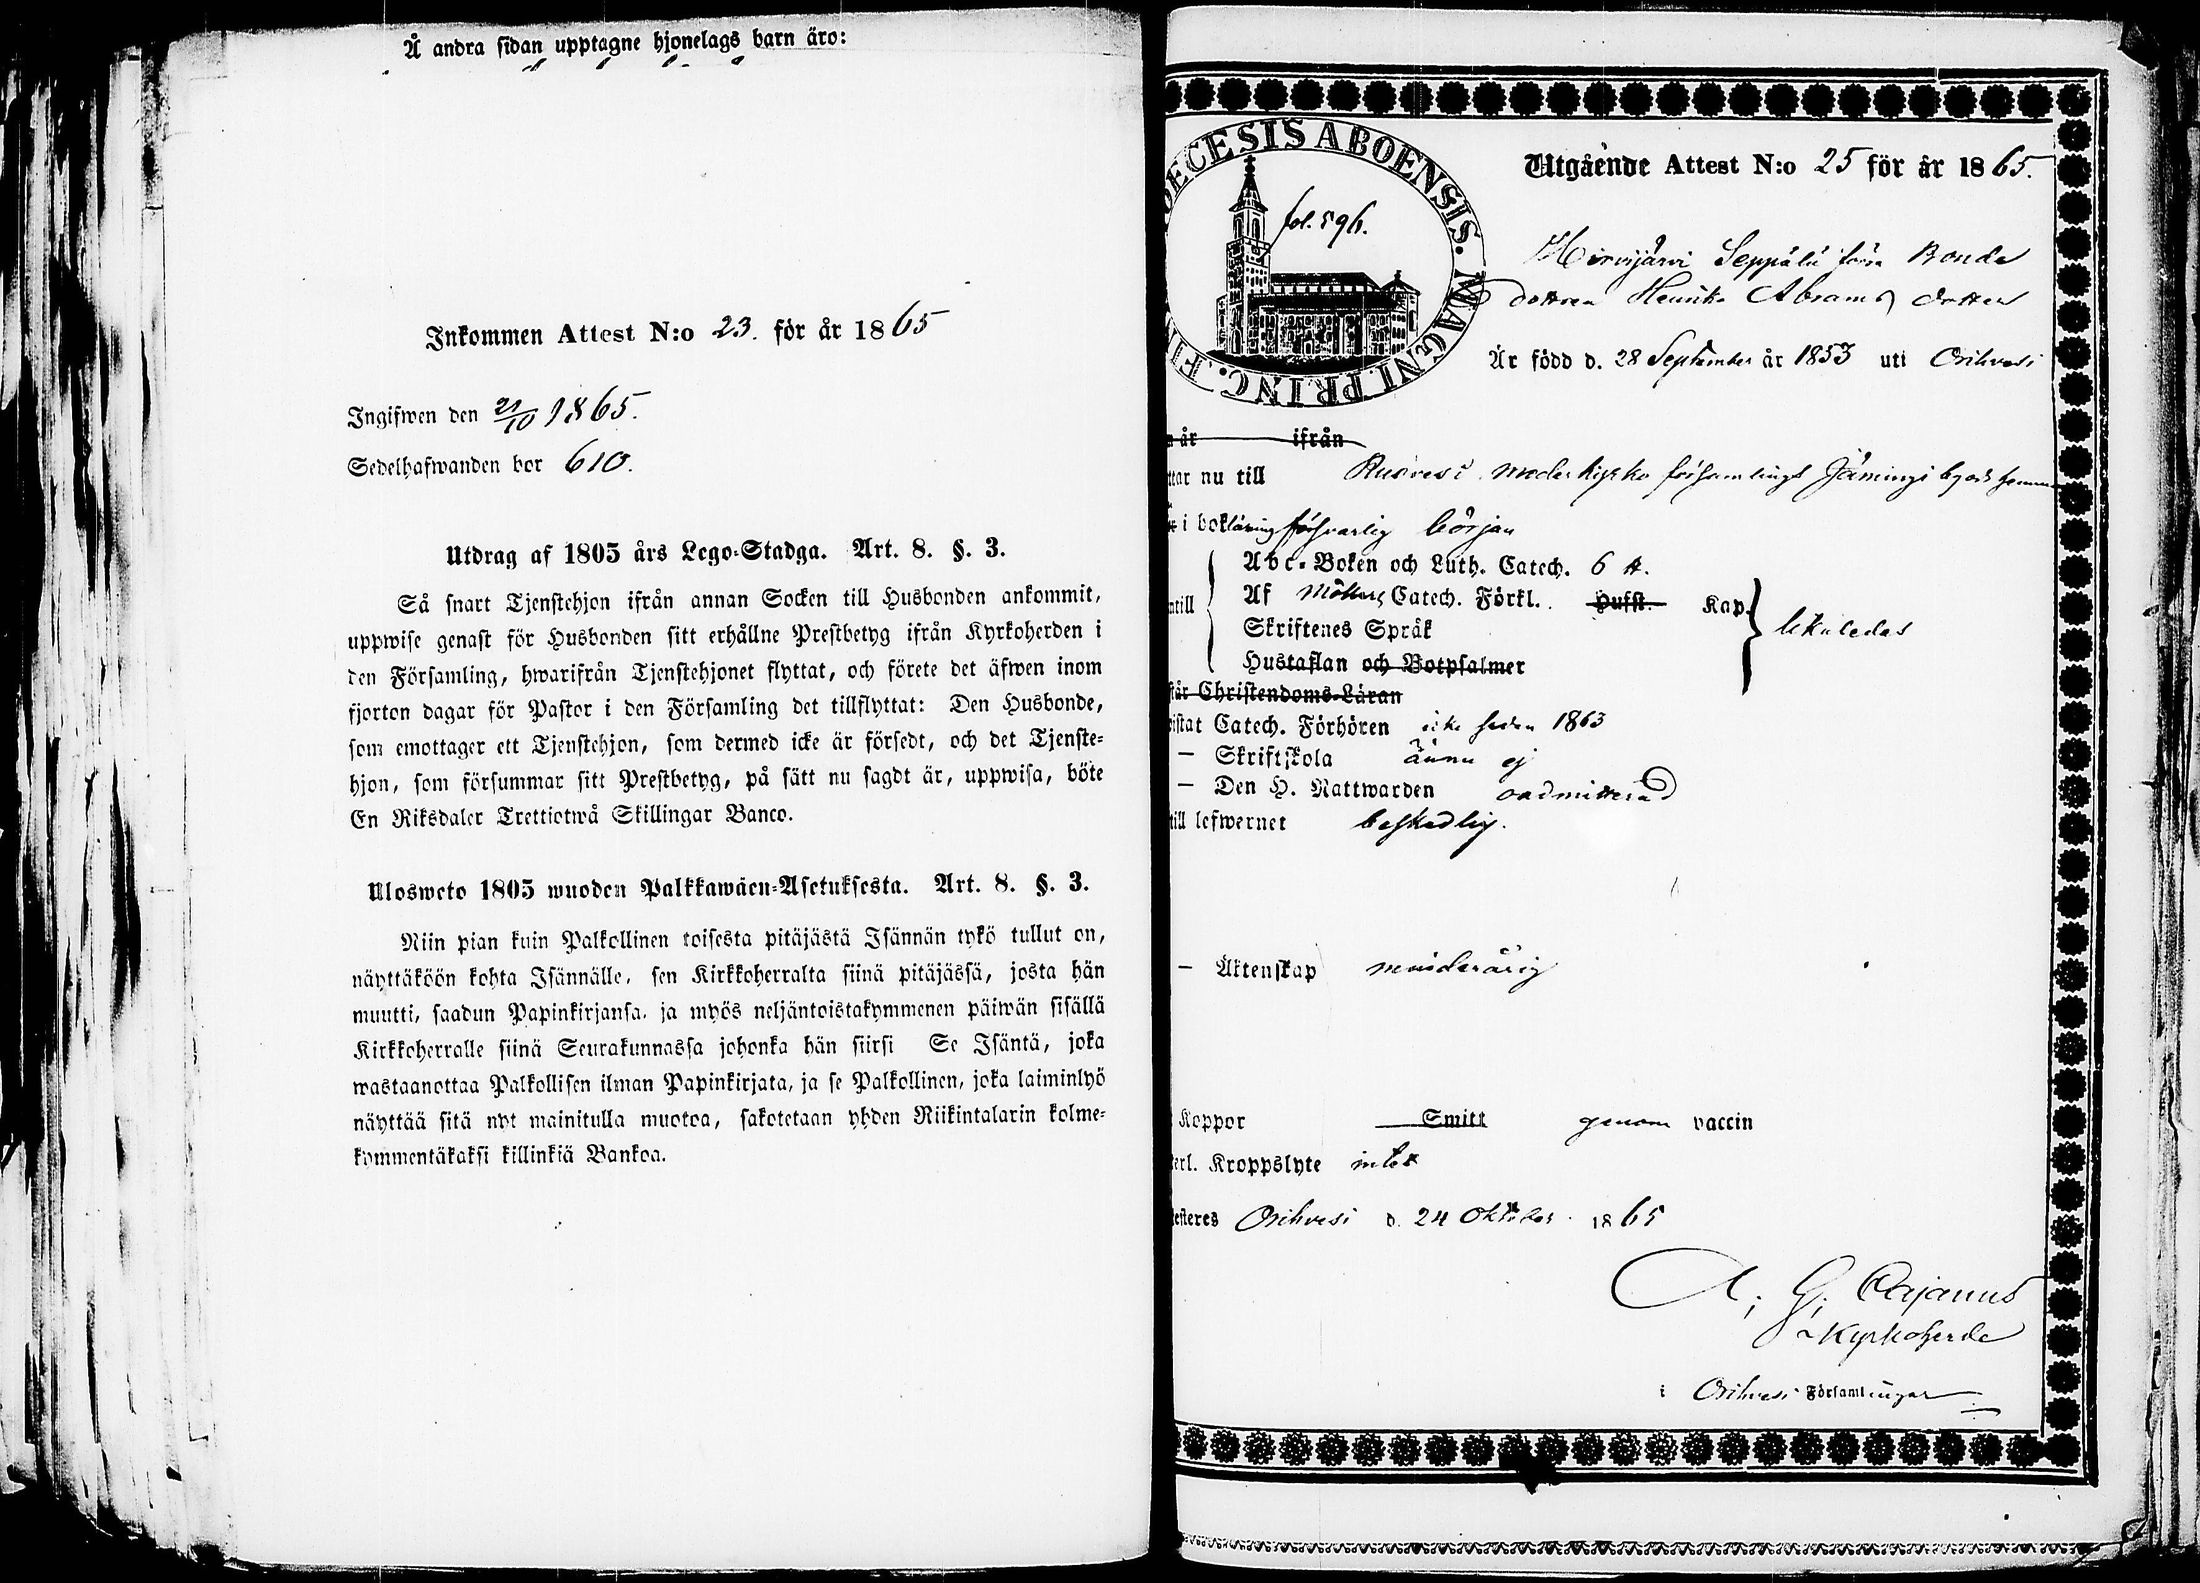 Å andra sidan upptagne hjonelags barn äro:
Inkommen Attest N:o 23. för år 1865
Ingifwen den 21/10 1865.
Sedelhafwanden bor 610.
Utdrag af 1805 års Lego-Stadga. Art. 8. §. 3.
Så snart Tjenstehjon ifrån annan Socken till Husbonden ankommit,
uppwise genast för Husbonden sitt erhållne Prestbetyg ifrån Kyrkoherden i
den Församling, hwarifrån Tjenstehjonet flyttat, och förete det äfwen inom
fjorton dagar för Pastor i den Församling det tillflyttat: Den Husbonde,
som emottager ett Tjenstehjon, som dermed icke är försedt, och det Tjenste-
hjon, som försummar sitt Prestbetyg, på sätt nu sagdt är, uppwisa, böte
En Riksdaler Trettiotwå Skillingar Banco.
Ulosweto 1805 wuoden Palkkawäen-Asetuksesta. Art. 8. §. 3.
Niin pian kuin Palkollinen toisesta pitäjästä Isännän tykö tullut on,
näyttäköön kohta Isännälle, sen Kirkkoherralta siinä pitäjässä, josta hän
muutti, saadun Papinkirjansa, ja myös neljäntoistakymmenen päiwän sisällä
Kirkkoherralle siinä Seurakunnassa johonka hän siirsi Se Isäntä, joka
wastaanottaa Palkollisen ilman Papinkirjata, ja se Palkollinen, joka laiminlyö
näyttää sitä nyt mainitulla muotoa, sakotetaan yhden Riikintalarin kolme-
kymmentäkaksi killinkiä Bankoa.
ECESIS ABOENSIS. MAGNI PRINC. FI
fol. 596.
Utgående Attest N:o 25 för år 1865.
Hirvijärvi Seppälä förra Bonde
dottren Henrika Abrams dotter
Är född d. 28 September år 1853 uti Orihvesi
år ifrån
tar nu till Ruovesi moderkyrko församlings Jämingi by och hemman
i bokläsning försvarlig början
Abc-Boken och Luth. Catech. 6 st.
till Af Möllers Catech. Förkl. Hufst. Kap.
Skriftenes Språk utaledas
Hustaflan och Botpsalmer
står Christendoms-Läran
istat Catech. Förhören icke sedan 1863
— Skriftskola ännu ej
— Den H. Nattwarden oadmitterad
till lefwernet beskedlig.
— Äktenskap minderårig
Koppor Smitt genom vaccin
erl. Kroppslyte intet
esteres Orihvesi d. 24 Oktober 1865
A. G. Cajanus
Kyrkoherde
i Orihvesi Församlingar